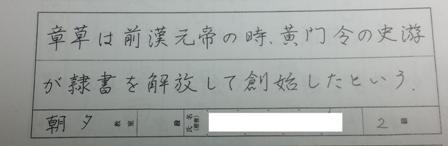 章草は前漢元帝の時、黄門令の史游
が隷書を解放して創始したという。
朝夕 教室 段 氏名 2 級